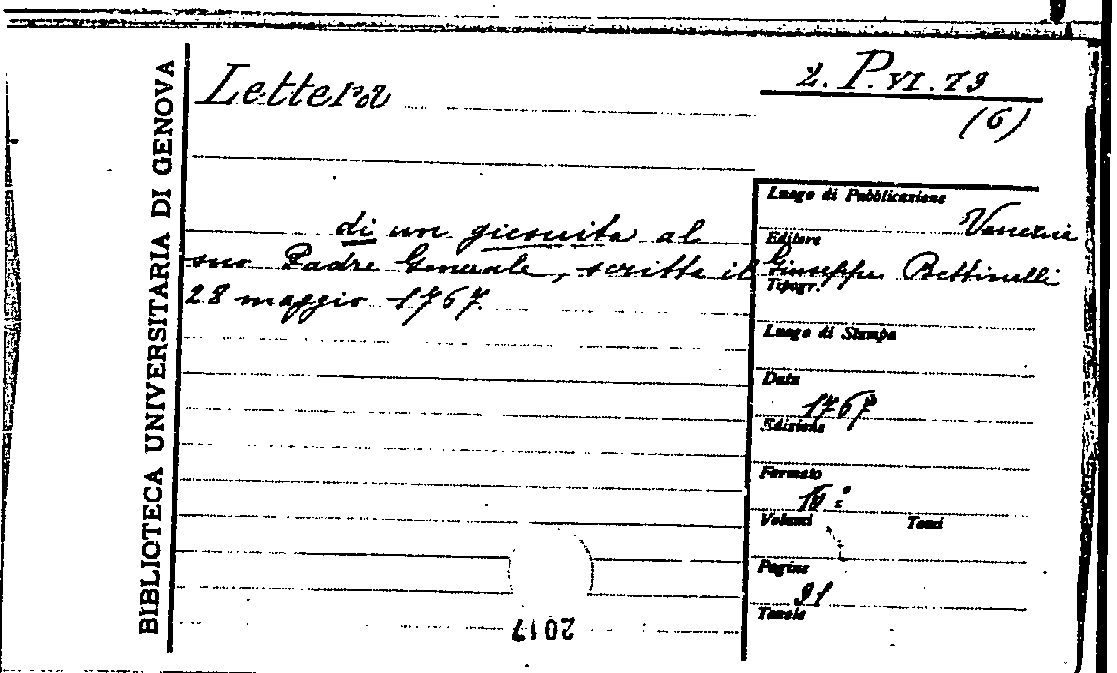 BIBLIOTECA UNIVERSITARIA DI GENOVA
Lettera
2. P. VI. 73
(6)
di un gesuita al
suo Padre Generale, scritta il
28 maggio 1767.
Luogo di Pubblicazione
Venezia
Editore
Giuseppe Bettinelli
Tipogr.
Luogo di Stampa
Data
1767
Edizione
Formato
Volumi Tomi
Pagine
31
Tavole
2017